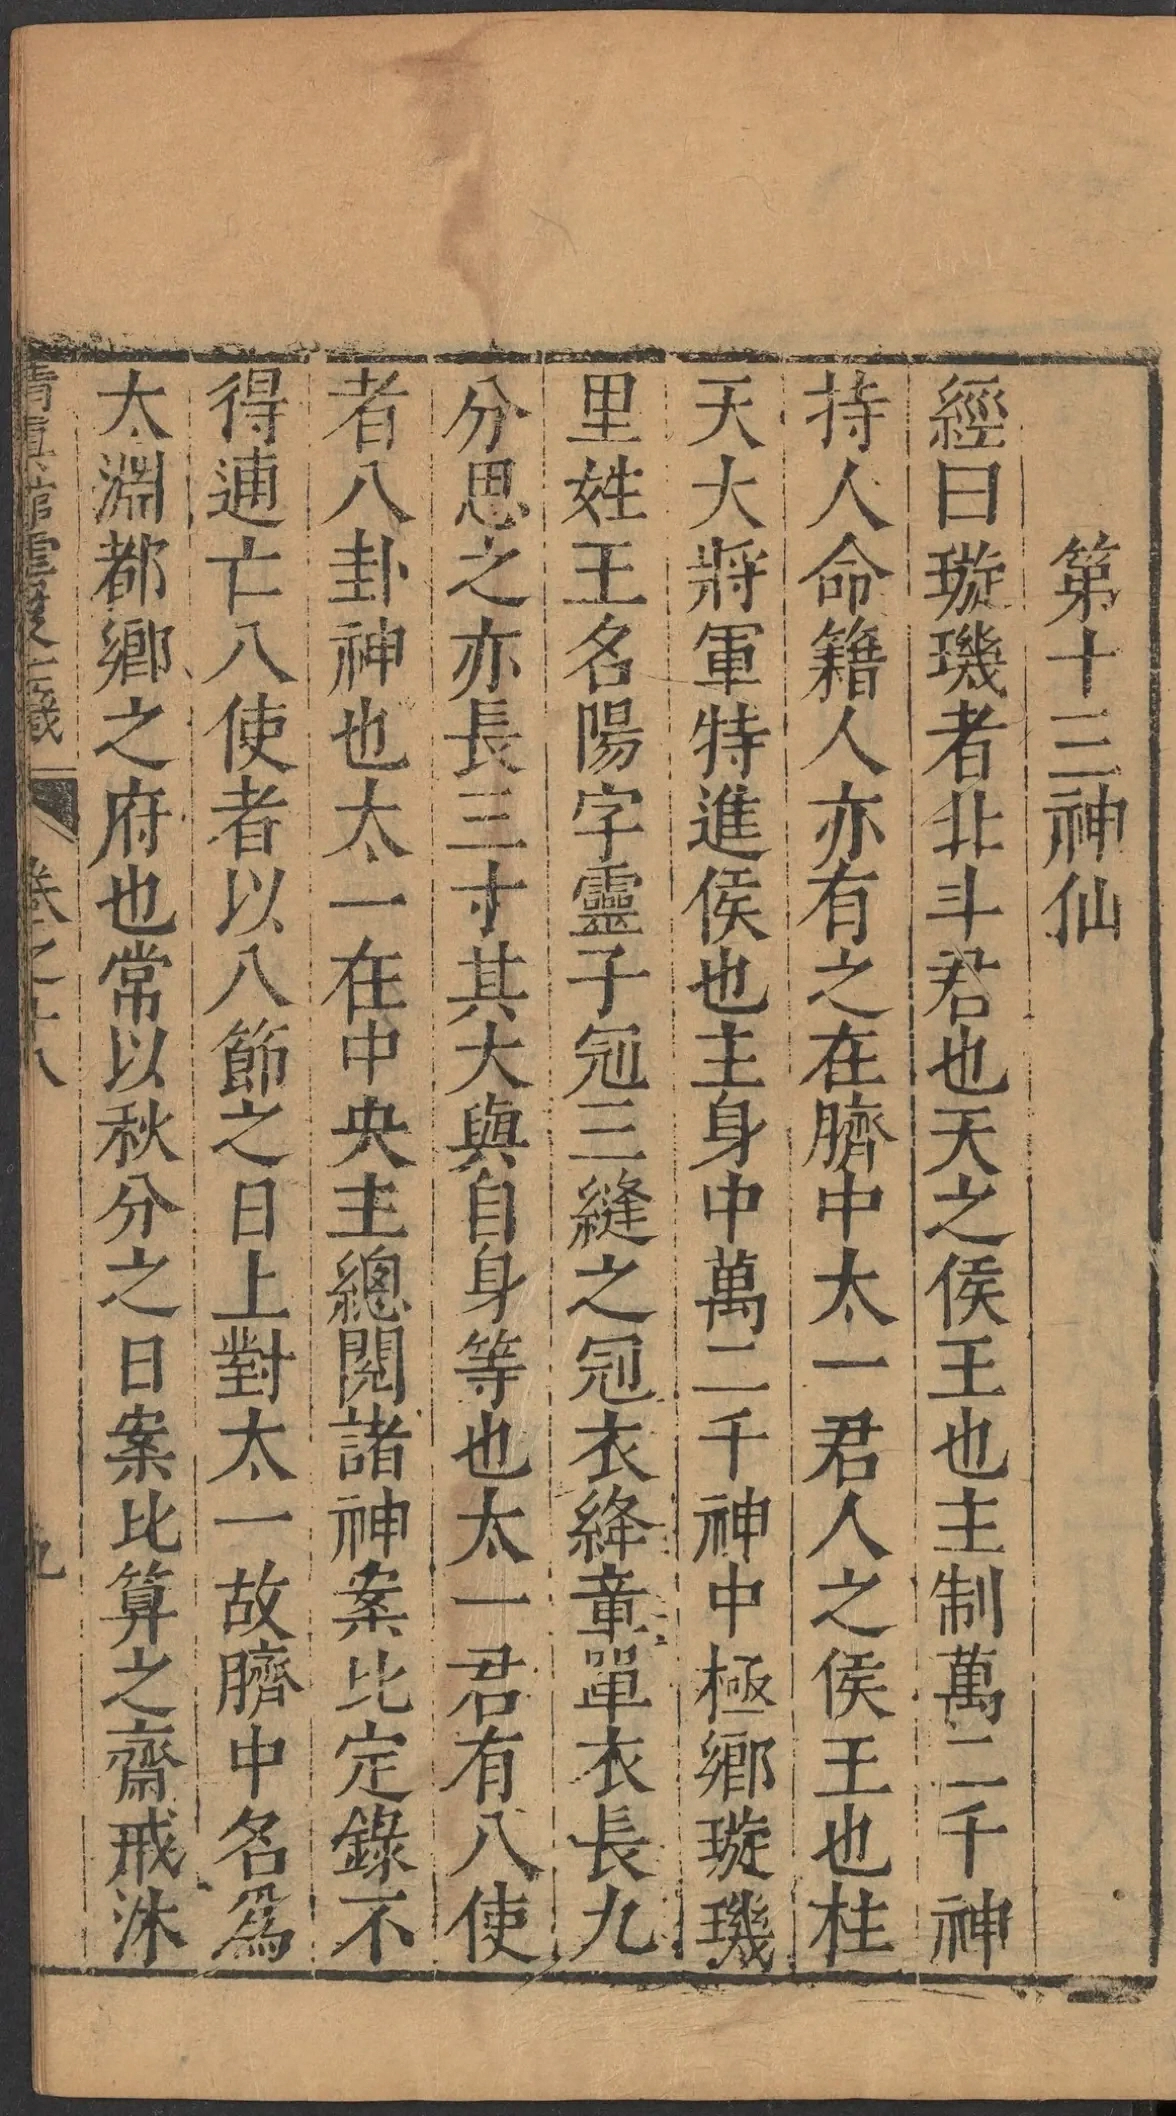 第十三神仙
經曰璇璣者北斗君也天之侯王也主制萬二千神
持人命籍人亦有之在臍中太一君人之侯王也柱
天大將軍特進侯也主身中萬二千神中極鄉璇璣
里姓王名陽字靈子冠三縫之冠衣絳章單衣長九
分思之亦長三寸其大與自身等也太一君有八使
者八卦神也太一在中央主總閱諸神案比定錄不
得逋亡八使者以八節之日上對太一故臍中名爲
太淵都鄉之府也常以秋分之日案比算之齋戒沐
清真館雲笈七籤 卷之十八 九